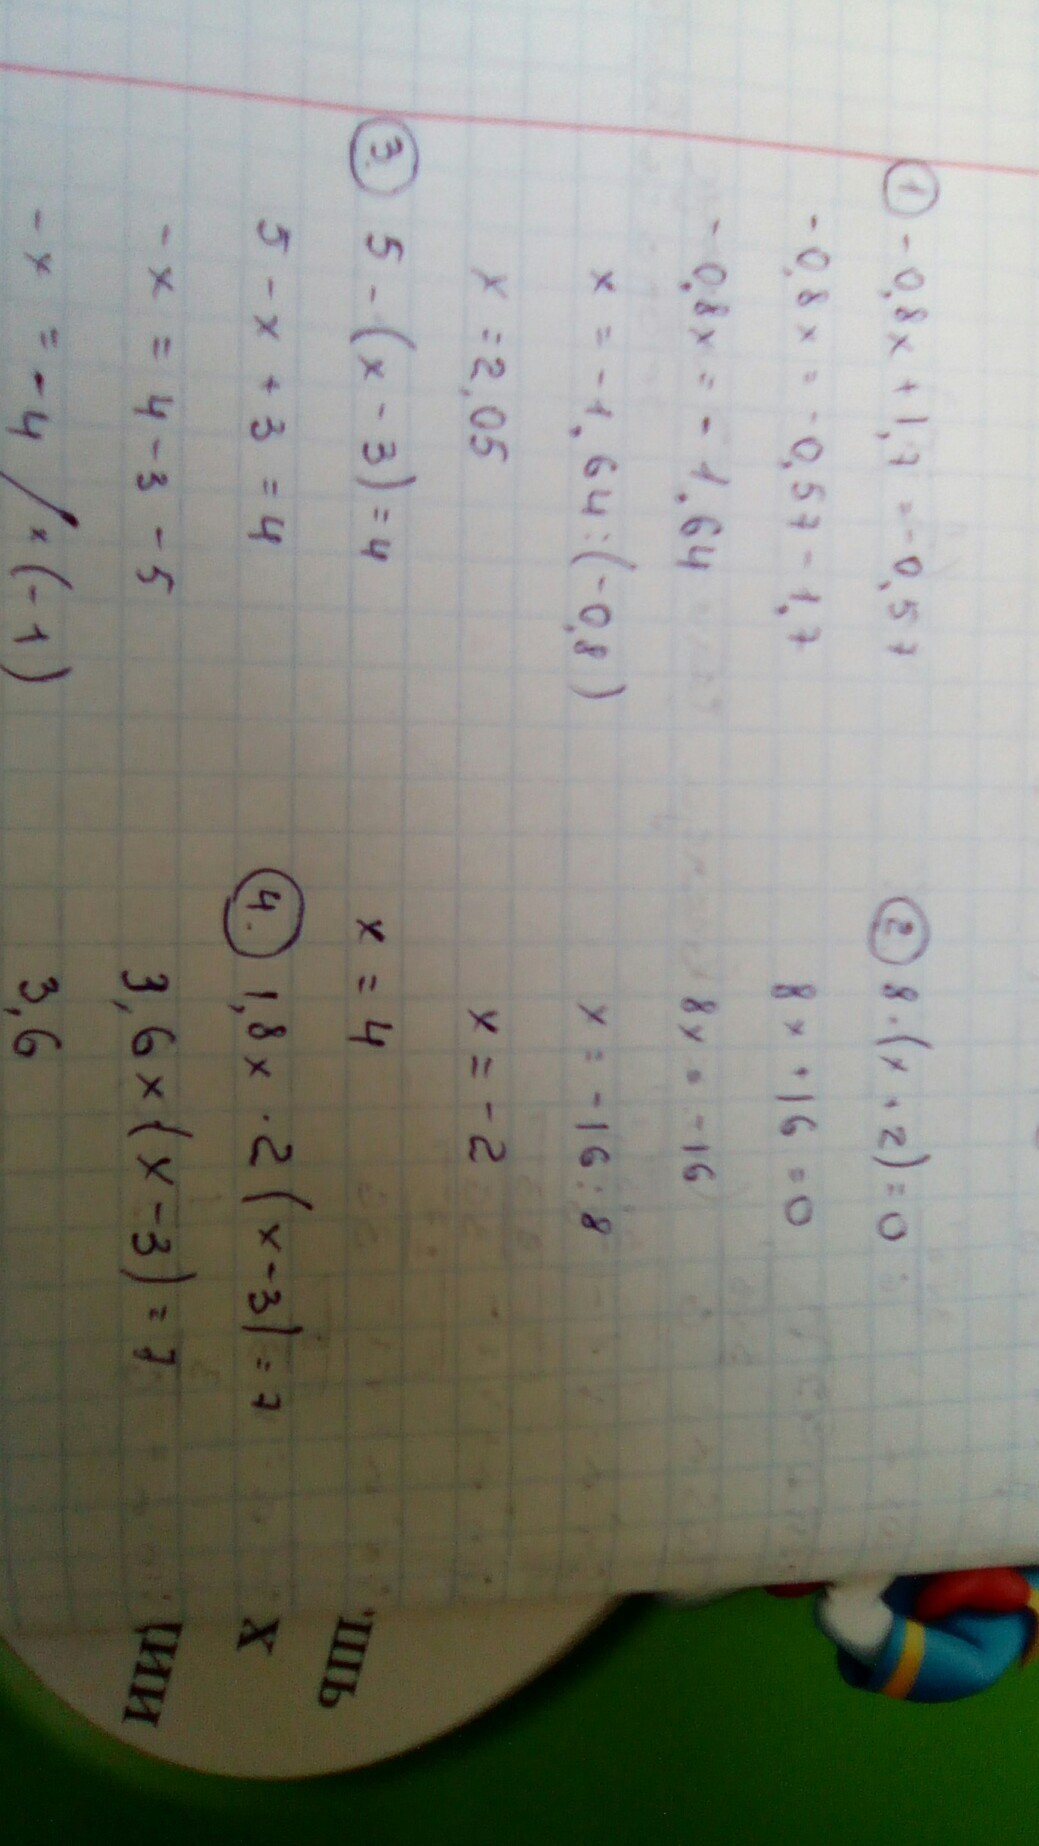 ① -0,8x + 1,7 = -0,57
-0,8x = -0,57 - 1,7
-0,8x = -1,64
x = -1,64 : (-0,8)
x = 2,05
② 8·(x+2)=0
8x+16=0
8x=-16
x = -16:8
x = -2
③ 5 - (x - 3) = 4
5 - x + 3 = 4
-x = 4 - 3 - 5
-x = -4 / × (-1)
x = 4
④ 1,8x · 2(x-3) = 7
3,6x(x-3) = 7
3,6
Х
ЦИИ